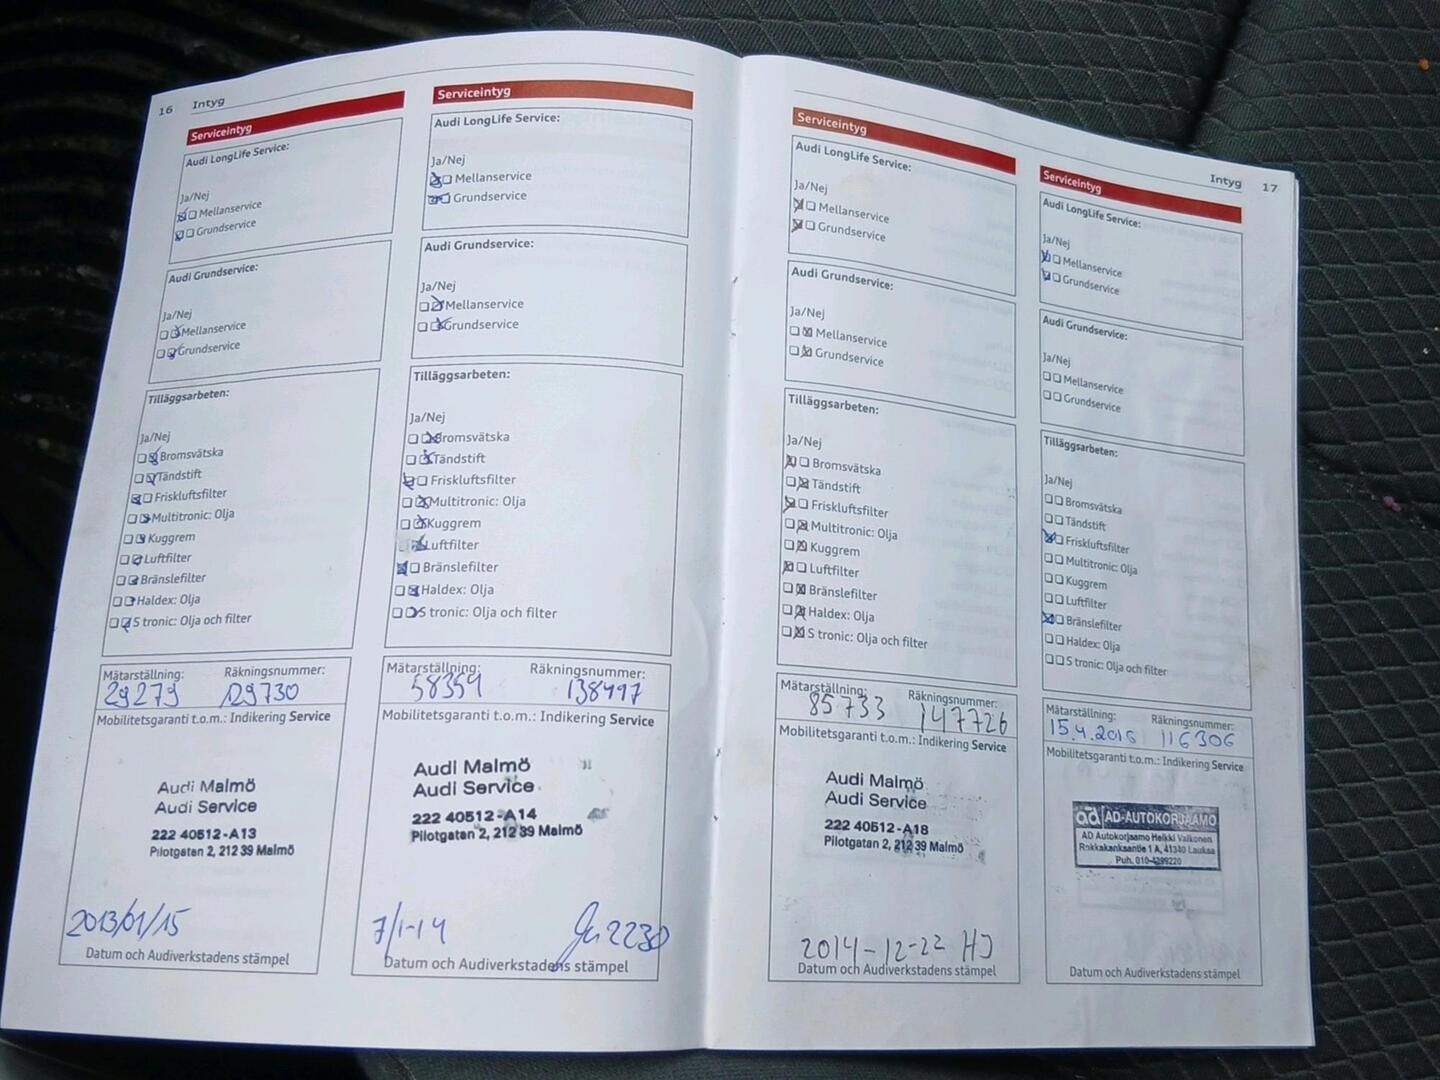 16 Intyg
Serviceintyg
Audi LongLife Service:
Ja/Nej
Mellanservice
Grundservice
Audi Grundservice:
Ja/Nej
Mellanservice
Grundservice
Tilläggsarbeten:
Ja/Nej
Bromsvätska
Tändstift
Friskluftsfilter
Multitronic: Olja
Kuggrem
Luftfilter
Bränslefilter
Haldex: Olja
S tronic: Olja och filter
Mätarställning: Räkningsnummer:
29279 129730
Mobilitetsgaranti t.o.m.: Indikering Service
Audi Malmö
Audi Service
222 40512-A13
Pilotgatan 2, 212 39 Malmö
2013/01/15
Datum och Audiverkstadens stämpel
Serviceintyg
Audi LongLife Service:
Ja/Nej
Mellanservice
Grundservice
Audi Grundservice:
Ja/Nej
Mellanservice
Grundservice
Tilläggsarbeten:
Ja/Nej
Bromsvätska
Tändstift
Friskluftsfilter
Multitronic: Olja
Kuggrem
Luftfilter
Bränslefilter
Haldex: Olja
S tronic: Olja och filter
Mätarställning: Räkningsnummer:
58359 138497
Mobilitetsgaranti t.o.m.: Indikering Service
Audi Malmö
Audi Service
222 40512-A14
Pilotgatan 2, 212 39 Malmö
7/1-14 2230
Datum och Audiverkstadens stämpel
Serviceintyg
Audi LongLife Service:
Ja/Nej
Mellanservice
Grundservice
Audi Grundservice:
Ja/Nej
Mellanservice
Grundservice
Tilläggsarbeten:
Ja/Nej
Bromsvätska
Tändstift
Friskluftsfilter
Multitronic: Olja
Kuggrem
Luftfilter
Bränslefilter
Haldex: Olja
S tronic: Olja och filter
Mätarställning: Räkningsnummer:
85733 147726
Mobilitetsgaranti t.o.m.: Indikering Service
Audi Malmö
Audi Service
222 40512-A18
Pilotgatan 2, 212 39 Malmö
2014-12-22 HJ
Datum och Audiverkstadens stämpel
Intyg 17
Serviceintyg
Audi LongLife Service:
Ja/Nej
Mellanservice
Grundservice
Audi Grundservice:
Ja/Nej
Mellanservice
Grundservice
Tilläggsarbeten:
Ja/Nej
Bromsvätska
Tändstift
Friskluftsfilter
Multitronic: Olja
Kuggrem
Luftfilter
Bränslefilter
Haldex: Olja
S tronic: Olja och filter
Mätarställning: Räkningsnummer:
15.4.2016 116306
Mobilitetsgaranti t.o.m.: Indikering Service
ad AD-AUTOKORJAAMO
AD Autokorjaamo Heikki Valkonen
Rokkakankaantie 1 A, 41340 Laukaa
Puh. 010-4299220
Datum och Audiverkstadens stämpel